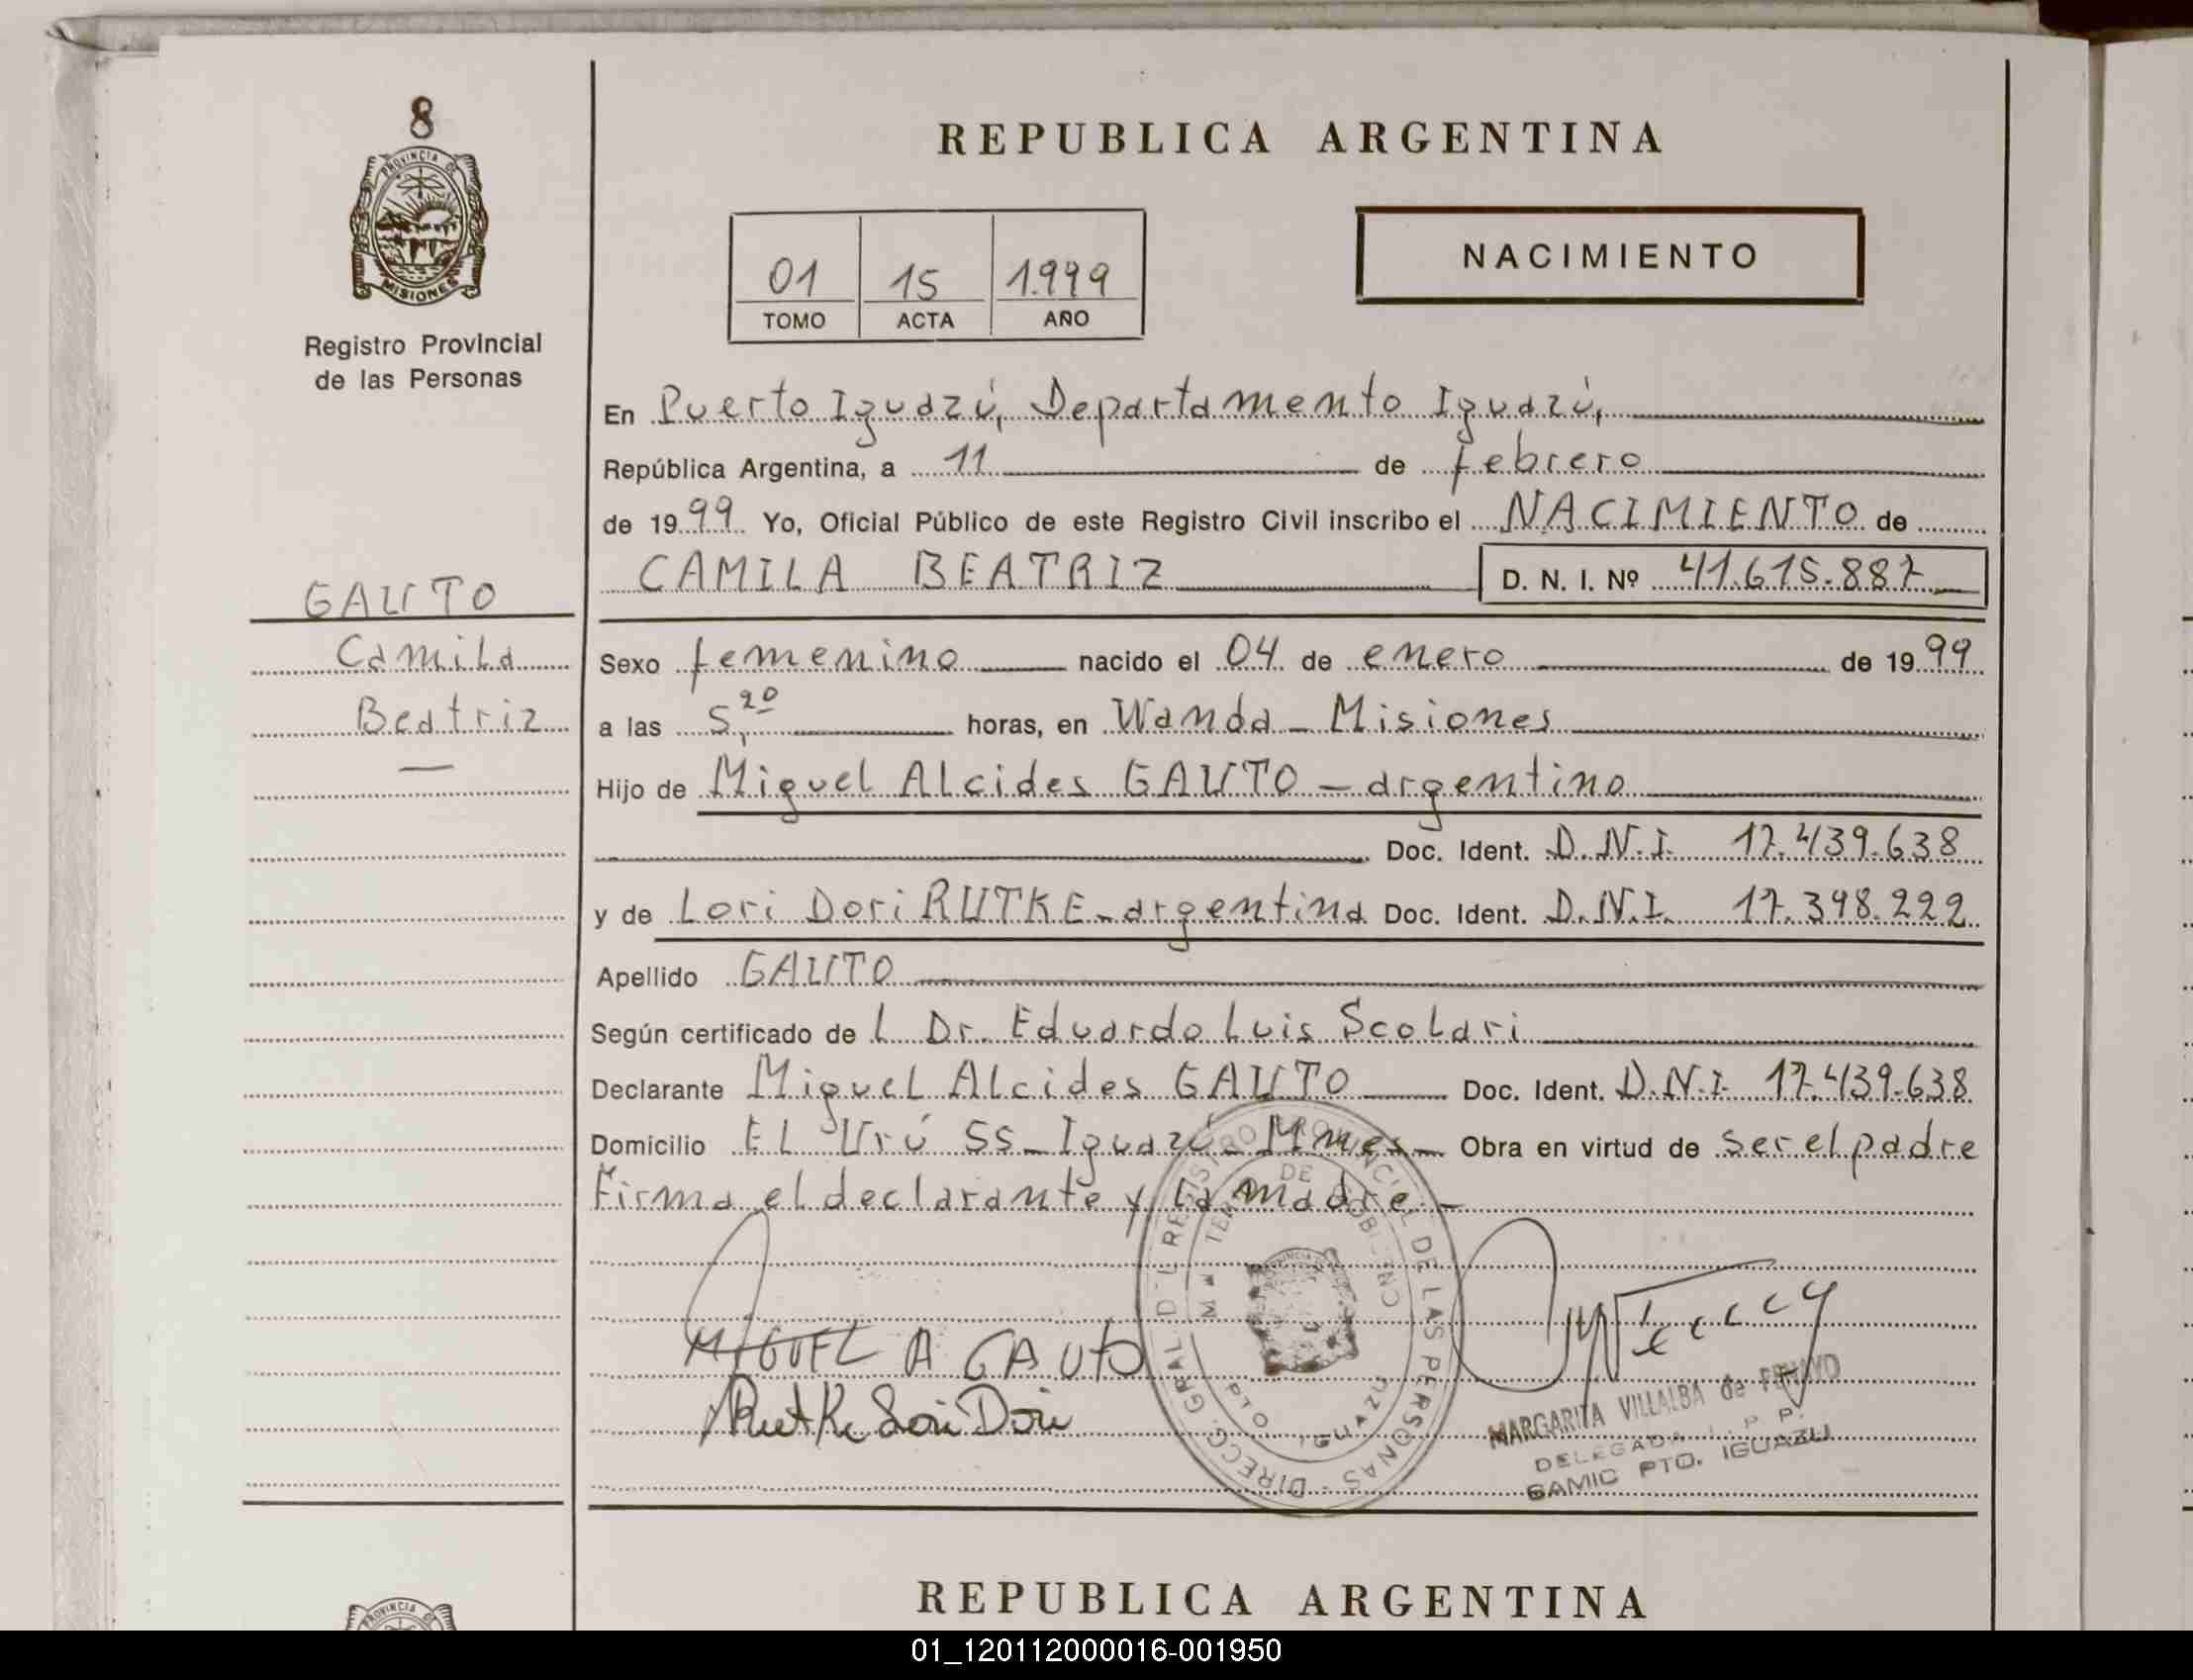 8
PROVINCIA DE
MISIONES
Registro Provincial
de las Personas
GAUTO
Camila
Beatriz
—
REPUBLICA ARGENTINA
01 15 1.999
TOMO ACTA AÑO
NACIMIENTO
En Puerto Iguazú, Departamento Iguazú,
República Argentina, a 11 de febrero
de 1999 Yo, Oficial Público de este Registro Civil inscribo el NACIMIENTO de
CAMILA BEATRIZ D. N. I. Nº 41.615.887
Sexo femenino nacido el 04 de enero de 1999
a las 5,20 horas, en Wanda - Misiones
Hijo de Miguel Alcides GAUTO - argentino
Doc. Ident. D.N.I. 17.439.638
y de Lori Dori RUTKE - argentina Doc. Ident. D.N.I. 17.398.222
Apellido GAUTO
Según certificado de l Dr. Eduardo Luis Scolari
Declarante Miguel Alcides GAUTO Doc. Ident. D.N.I. 17.439.638
Domicilio El Urú SS - Iguazú - Mnes - Obra en virtud de ser el padre
Firma el declarante y la madre. -
MIGUEL A GAUTO
Rutke Lori Dori
DIRECC. GRAL DEL REGISTRO PROVINCIAL DE LAS PERSONAS
DE GOBIERNO
PTO IGUAZU
MARGARITA VILLALBA de
DELEGADA R. P. P.
SAMIC PTO. IGUAZU
REPUBLICA ARGENTINA
PROVINCIA
01_120112000016-001950